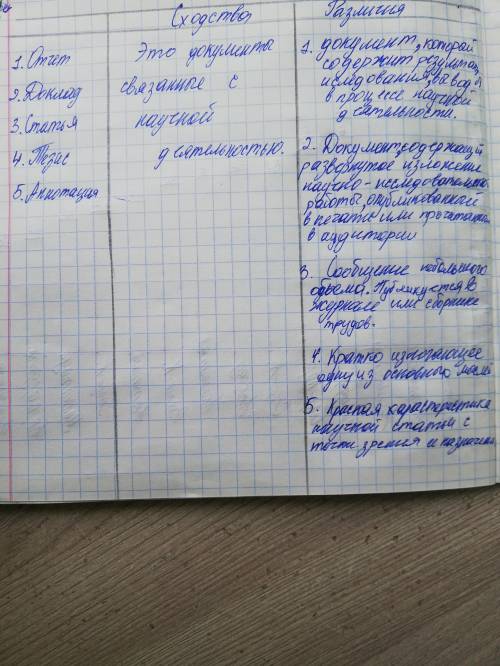 Сходства
Различия
1. Отчет
2. Доклад
3. Статья
4. Тезис
5. Аннотация
Это документы
связанные с
научной
деятельностью.
1. документ, который
содержит результат
вывод
в процессе научной
деятельности.
2. Документ, содержащий
развернутое изложение
научно-исследовательской
работы, опубликованной
в печати или прочитанной
в аудитории
3. Сообщение небольшого
объема. Публикуется в
журнале или сборнике
трудов.
4. Кратко излогающее
одну из основных мысль
5. характеристика
научной статьи с
точки зрения и назначения